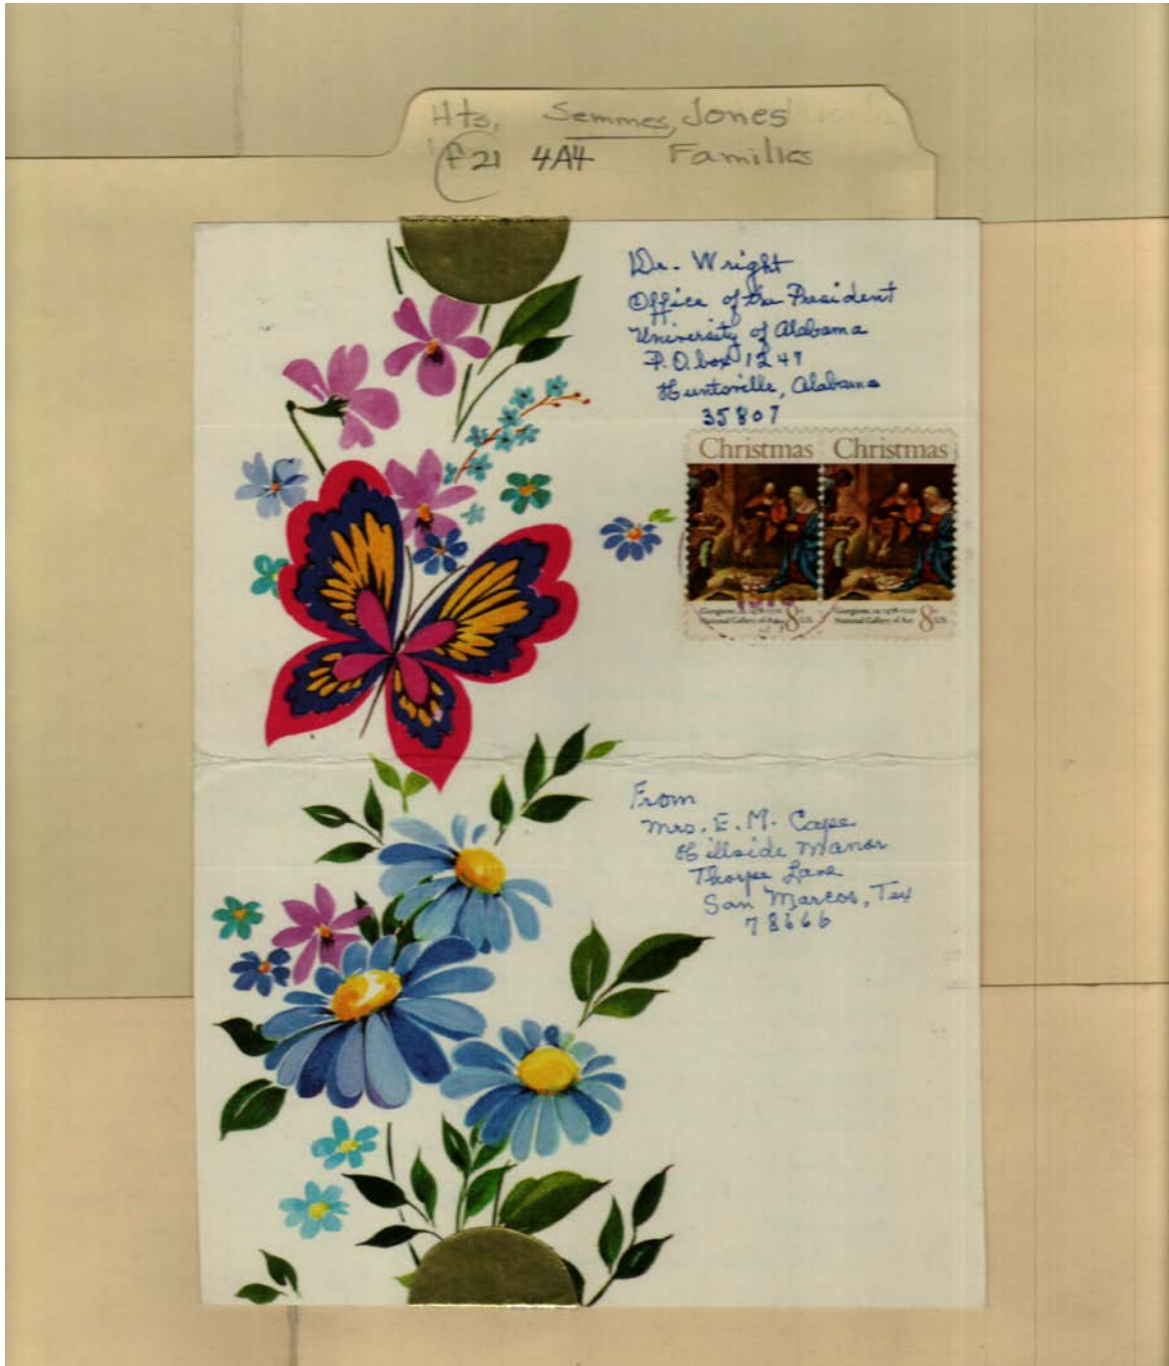 Hts. Semmes, Jones
f21 4A4 Families
Dr. Wright
Office of the President
University of Alabama
P.O. box 1247
Huntsville, Alabama
35807
Christmas Christmas
Giorgione, National Gallery of Art 8c US
Giorgione, National Gallery of Art 8c US
From
Mrs. E. M. Cape
Hillside Manor
Thorpe Lane
San Marcos, Tex
78666